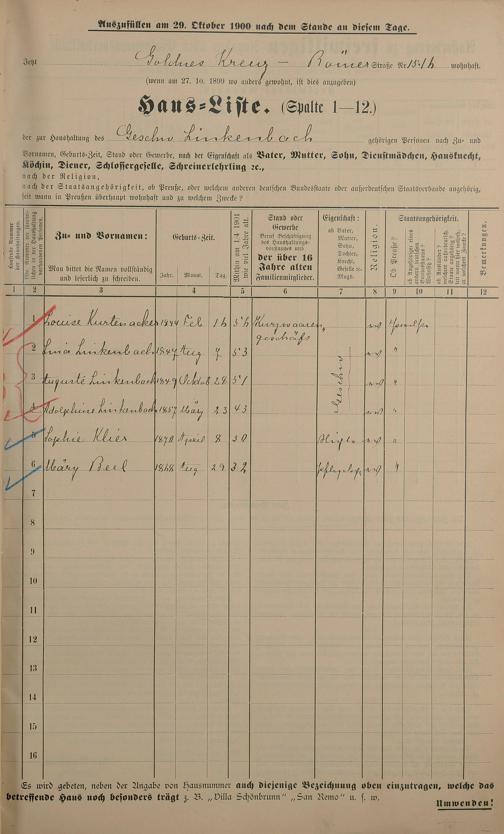 Auszufüllen am 29. Oktober 1900 nach dem Stande an diesem Tage.
Jetzt Goldnes Kreuz – Römer Straße Nr 15-16 wohnhaft.
(wenn am 27. 10. 1899 wo anders gewohnt, ist dies anzugeben)
Haus-Liste. (Spalte 1—12.)
der zur Haushaltung des Geschw Linkenbach gehörigen Personen nach Zu- und
Vornamen, Geburts-Zeit, Stand oder Gewerbe, nach der Eigenschaft als Vater, Mutter, Sohn, Dienstmädchen, Hausknecht,
Köchin, Diener, Schlossergeselle, Schreinerlehrling ꝛc.,
nach der Religion,
nach der Staatsangehörigkeit, ob Preuße, oder welchem anderen deutschen Bundesstaate oder außerdeutschen Staatsverbande angehörig,
seit wann in Preußen überhaupt wohnhaft und zu welchem Zwecke?
Zu- und Vornamen:
Man bittet die Namen vollständig und leserlich zu schreiben.
Geburts-Zeit.
Jahr. Monat. Tag
Mithin am 1.4 1901 wie viel Jahre alt.
Stand oder Gewerbe
der über 16 Jahre alten
Familienmitglieder.
Eigenschaft:
ob Vater, Mutter, Sohn, Tochter, Knecht, Geselle od. Magd.
Religion.
Staatsangehörigkeit.
Ob Preuße?
Bemerkungen.
1 2 3 4 5 6 7 8 9 10 11 12
1 Louise Kurtenacker 1844 Feb 16 56 Kurzwaaren
geschäft
2 Lina Linkenbach 1847 Aug 7 53 "
3 Auguste Linkenbach 1849 Oktob 28 51 Geschw "
4 Adolphine Linkenbach 1857 März 23 43 "
5 Sophie Klier 1870 April 8 30 "
6 Märy Beel 1868 Aug 29 32 "
7
8
9
10
11
12
13
14
15
16
Es wird gebeten, neben der Angabe von Hausnummer auch diejenige Bezeichnung oben einzutragen, welche das
betreffende Haus noch besonders trägt z. B. „Villa Schönbrunn" „San Remo" u. s. w.
Umwenden!